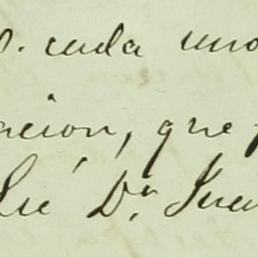 cada uno
acion, que
Lic D.n Juan